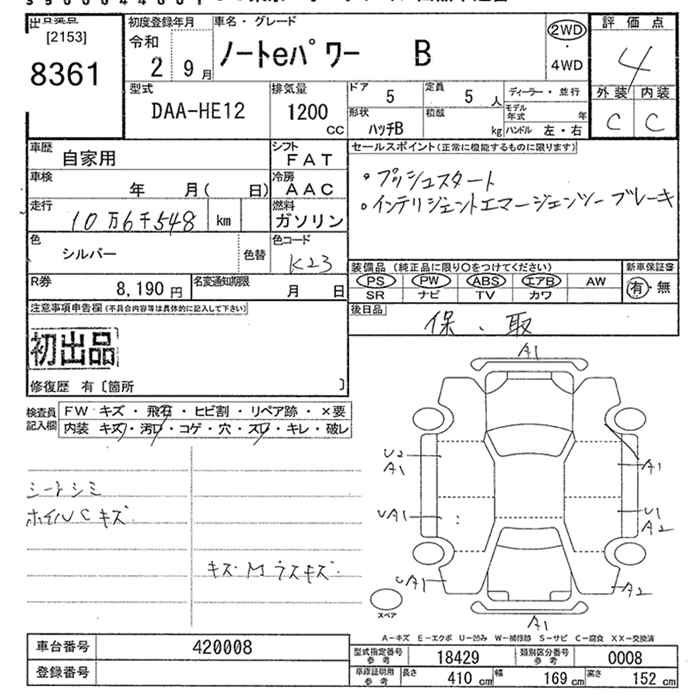 [2153]
8361
初度登録年月
令和
2 9月
車名・グレード
ノートeパワー B
2WD
・
4WD
評価点
4
外装 内装
C C
型式
DAA-HE12
排気量
1200
CC
ドア
5
定員
5 人
形状
ハッチB
積載
kg
ディーラー・並行
モデル年式 年
ハンドル 左・右
車歴
自家用
シフト
FAT
車検
年 月( 日)
冷房
AAC
走行
10万6千548 km
燃料
ガソリン
色
シルバー
色替
色コード
K23
R券
8,190 円
名変通知期限
月 日
セールスポイント(正常に機能するものに限ります)
・プッシュスタート
・インテリジェントエマージェンシーブレーキ
装備品(純正品に限り○をつけてください)
PS PW ABS エアB AW
SR ナビ TV カワ
新車保証書
有・無
後日品
保、取
注意事項申告欄(不具合内容等は具体的に記入して下さい)
初出品
修復歴 有〔箇所 〕
検査員
記入欄
FW キズ・飛石・ヒビ割・リペア跡・×要
内装 キズ・汚レ・コゲ・穴・スレ・キレ・破レ
シートシミ
ホイルCキズ
キズMラスキズ
A1
U2
A1
A1
UA1
U1
A2
UA1
A2
A1
スペア
A-キズ E-エクボ U-凹み W-補修跡 S-サビ C-腐食 XX-交換済
車台番号
420008
登録番号
型式指定番号
参考
18429
類別区分番号
参考
0008
車庫証明用
参考
長さ
410 cm
幅
169 cm
高さ
152 cm